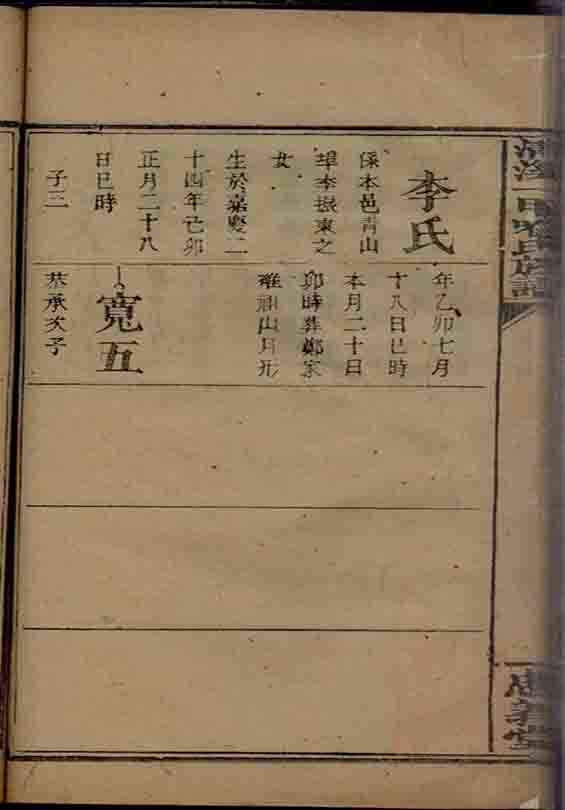 李氏
係本邑青山
李振東之
女
生於嘉慶二
十四年己卯
正月二十八
日巳時
子二
年乙卯七月
十八日巳時
本月二十日
卯時葬鄭家
山月形
寬五
恭承次子
氏族譜
堂